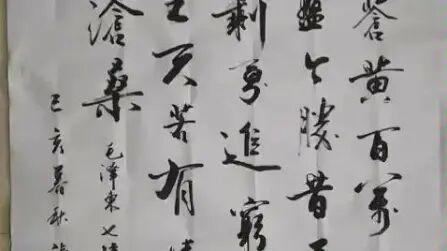 蒼黄百萬
盤今勝昔
剩勇追窮
天若有
滄桑
毛澤東七律
己亥暮秋